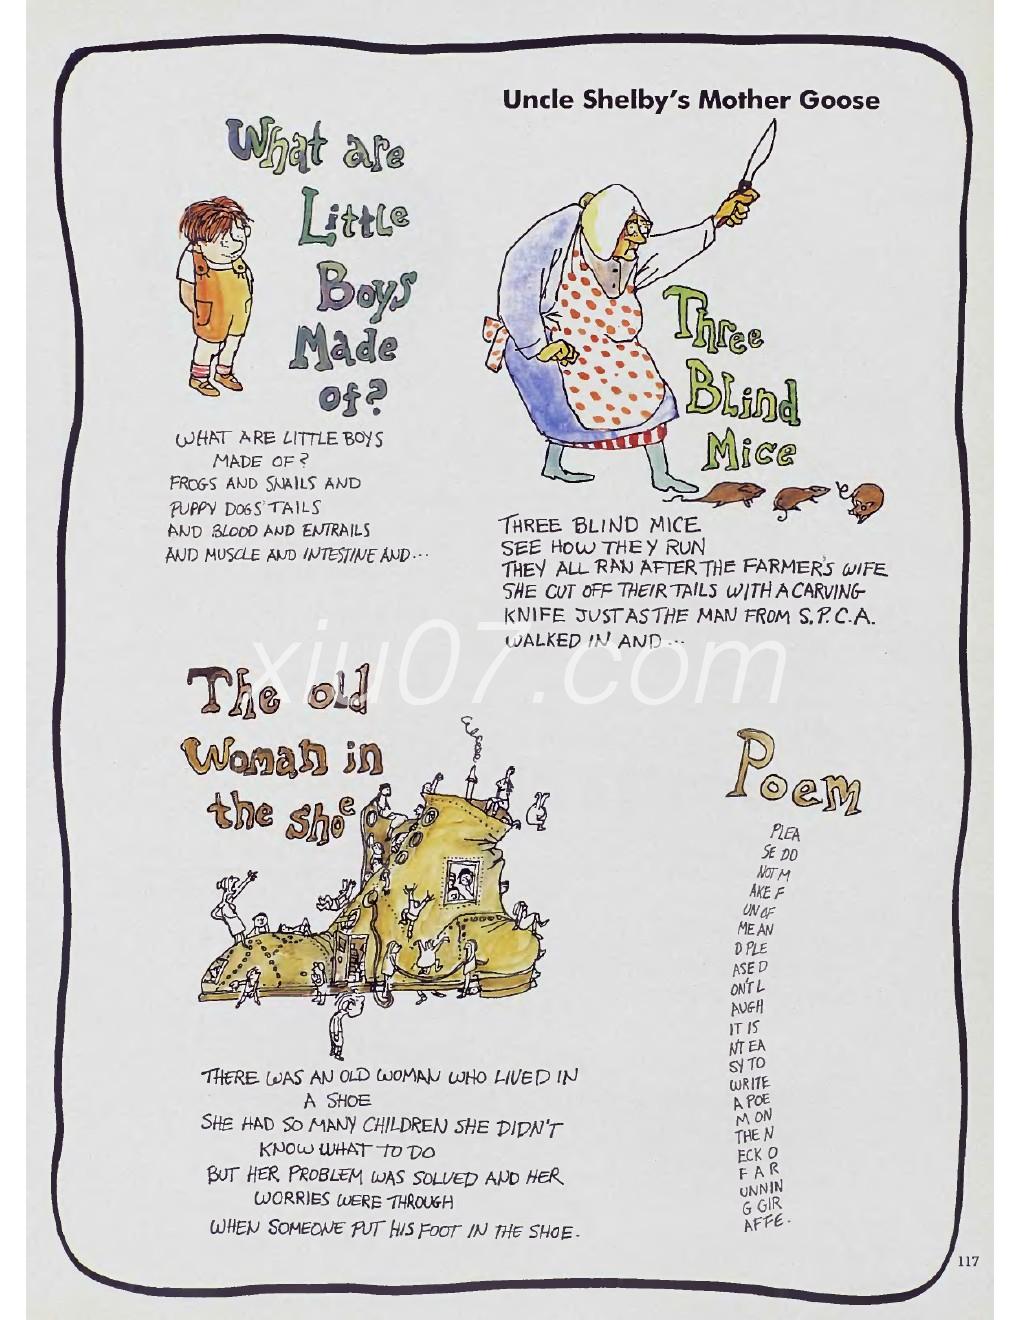 Uncle Shelby's Mother Goose
What are
Little
Boys
Made
of?
WHAT ARE LITTLE BOYS
MADE OF?
FROGS AND SNAILS AND
PUPPY DOGS' TAILS
AND BLOOD AND ENTRAILS
AND MUSCLE AND INTESTINE AND...
Three
Blind
Mice
THREE BLIND MICE
SEE HOW THEY RUN
THEY ALL RAN AFTER THE FARMER'S WIFE
SHE CUT OFF THEIR TAILS WITH A CARVING
KNIFE JUST AS THE MAN FROM S.P.C.A.
WALKED IN AND...
xiu07.com
The old
Woman in
the shoe
THERE WAS AN OLD WOMAN WHO LIVED IN
A SHOE
SHE HAD SO MANY CHILDREN SHE DIDN'T
KNOW WHAT TO DO
BUT HER PROBLEM WAS SOLVED AND HER
WORRIES WERE THROUGH
WHEN SOMEONE PUT HIS FOOT IN THE SHOE.
Poem
PLEA
SE DO
NOT M
AKE F
UN OF
ME AN
D PLE
ASE D
ON'T L
AUGH
IT IS
N'T EA
SY TO
WRITE
A POE
M ON
THE N
ECK O
F A R
UNNIN
G GIR
AFFE.
117